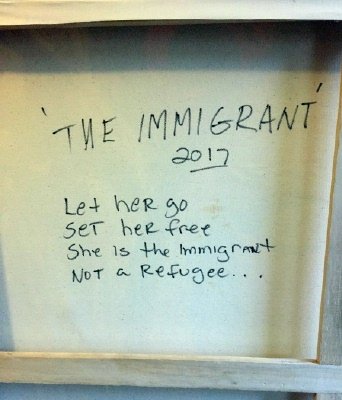 'THE IMMIGRANT'
2017
Let her go
SET her free
She is the Immigrant
NOT a Refugee...